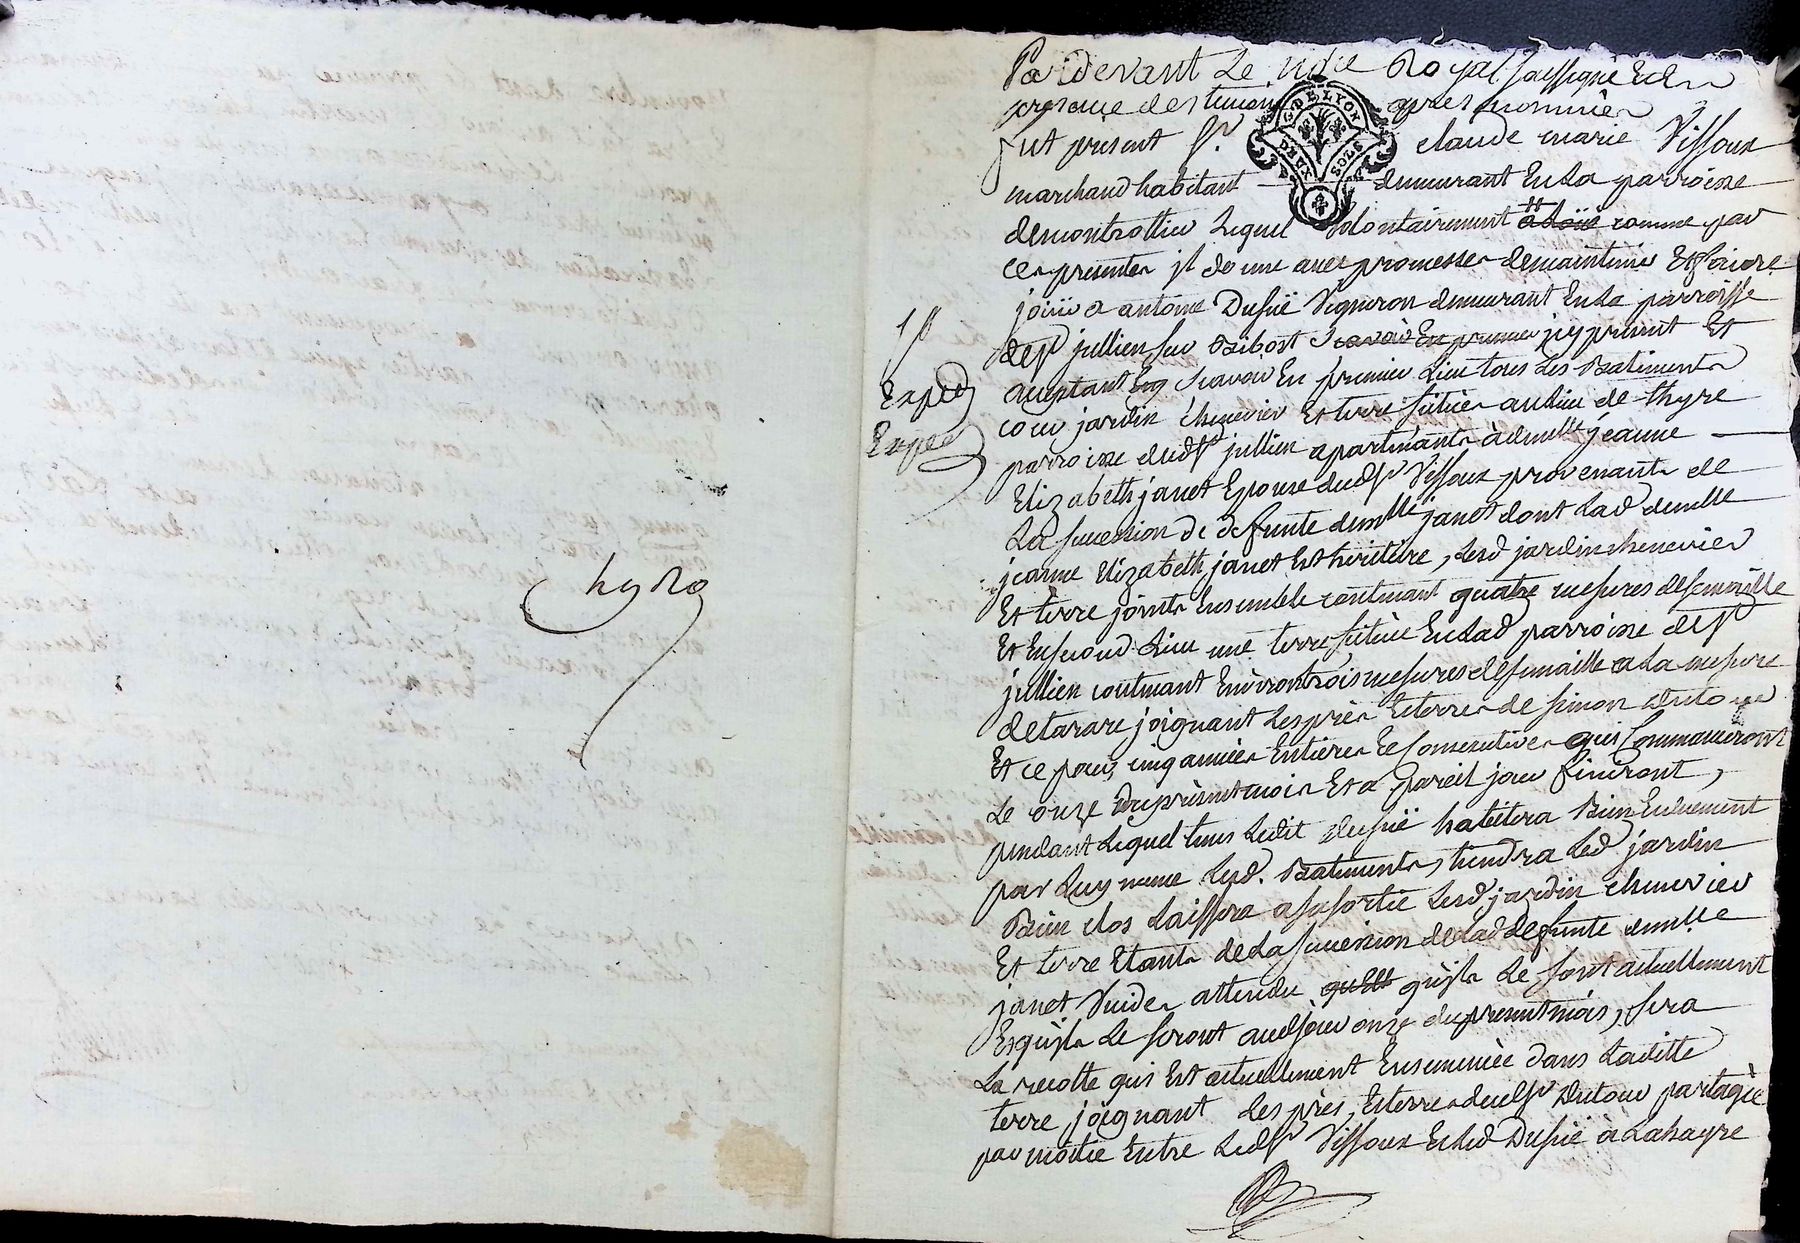 Pardevant Le no.re Royal soussigné Et En
presence des temoins apres nommés
fut present Sr. claude marie Vissoux
marchand habitant demeurant En La parroisse
demontrottier Lequel volontairement a Loüé comme par
Ces presentes jl donne avec promesse demaintenir Et faire
joüir a antoine Dussuë Vigneron demeurant En La parroisse
deSt jullien sur Bibost Scavoir En premier jcy present Et
acceptant Scavoir En premier Lieu tous Les Batiments
cour jardin chenevier Et terre situés au Lieu de thyre
parroisse dudSt jullien apartenants à demlle jeanne
Elizabeth janet Epouse dudSr Vissoux provenants de
La succession de defunte demlle janet dont Lad demlle
jeanne Elizabeth janet Est heritiere, Lesd jardin chenevier
Et terre joints Ensemble contenant quatre mesures desemaille
Et En second Lieu une terre située En Lad parroisse deSt
jullien contenant Environ trois mesures desemaille a La mesure
detarare joignant Les prés Et terres de simon dutour
Et ce pour cinq années Entieres Et Consecutives qui Commanceront
Le onze du present mois Et a pareil jour finiront,
pendant Lequel tems Ledit dussuë habitera Bien Et duement
par Luy meme Lesd. Batiments, tiendra Led jardin
Bien clos Laissera a sa sortie Lesd jardin chenevier
Et terre Etants de La succession de Lad defunte demlle
janet Vuides attendu quils Le sont actuellement
Et quils Le seront audjour onze du present mois, sera
La recolte qui Est actuellement Ensemencée dans Laditte
terre joignant Les prés, Et terres dudSr Dutour partagée
par moitié Entre LedSr Vissoux Et Led Dussuë à Lahayre
G. DE LYON
DEUX SOLS
Expéd
Expéd